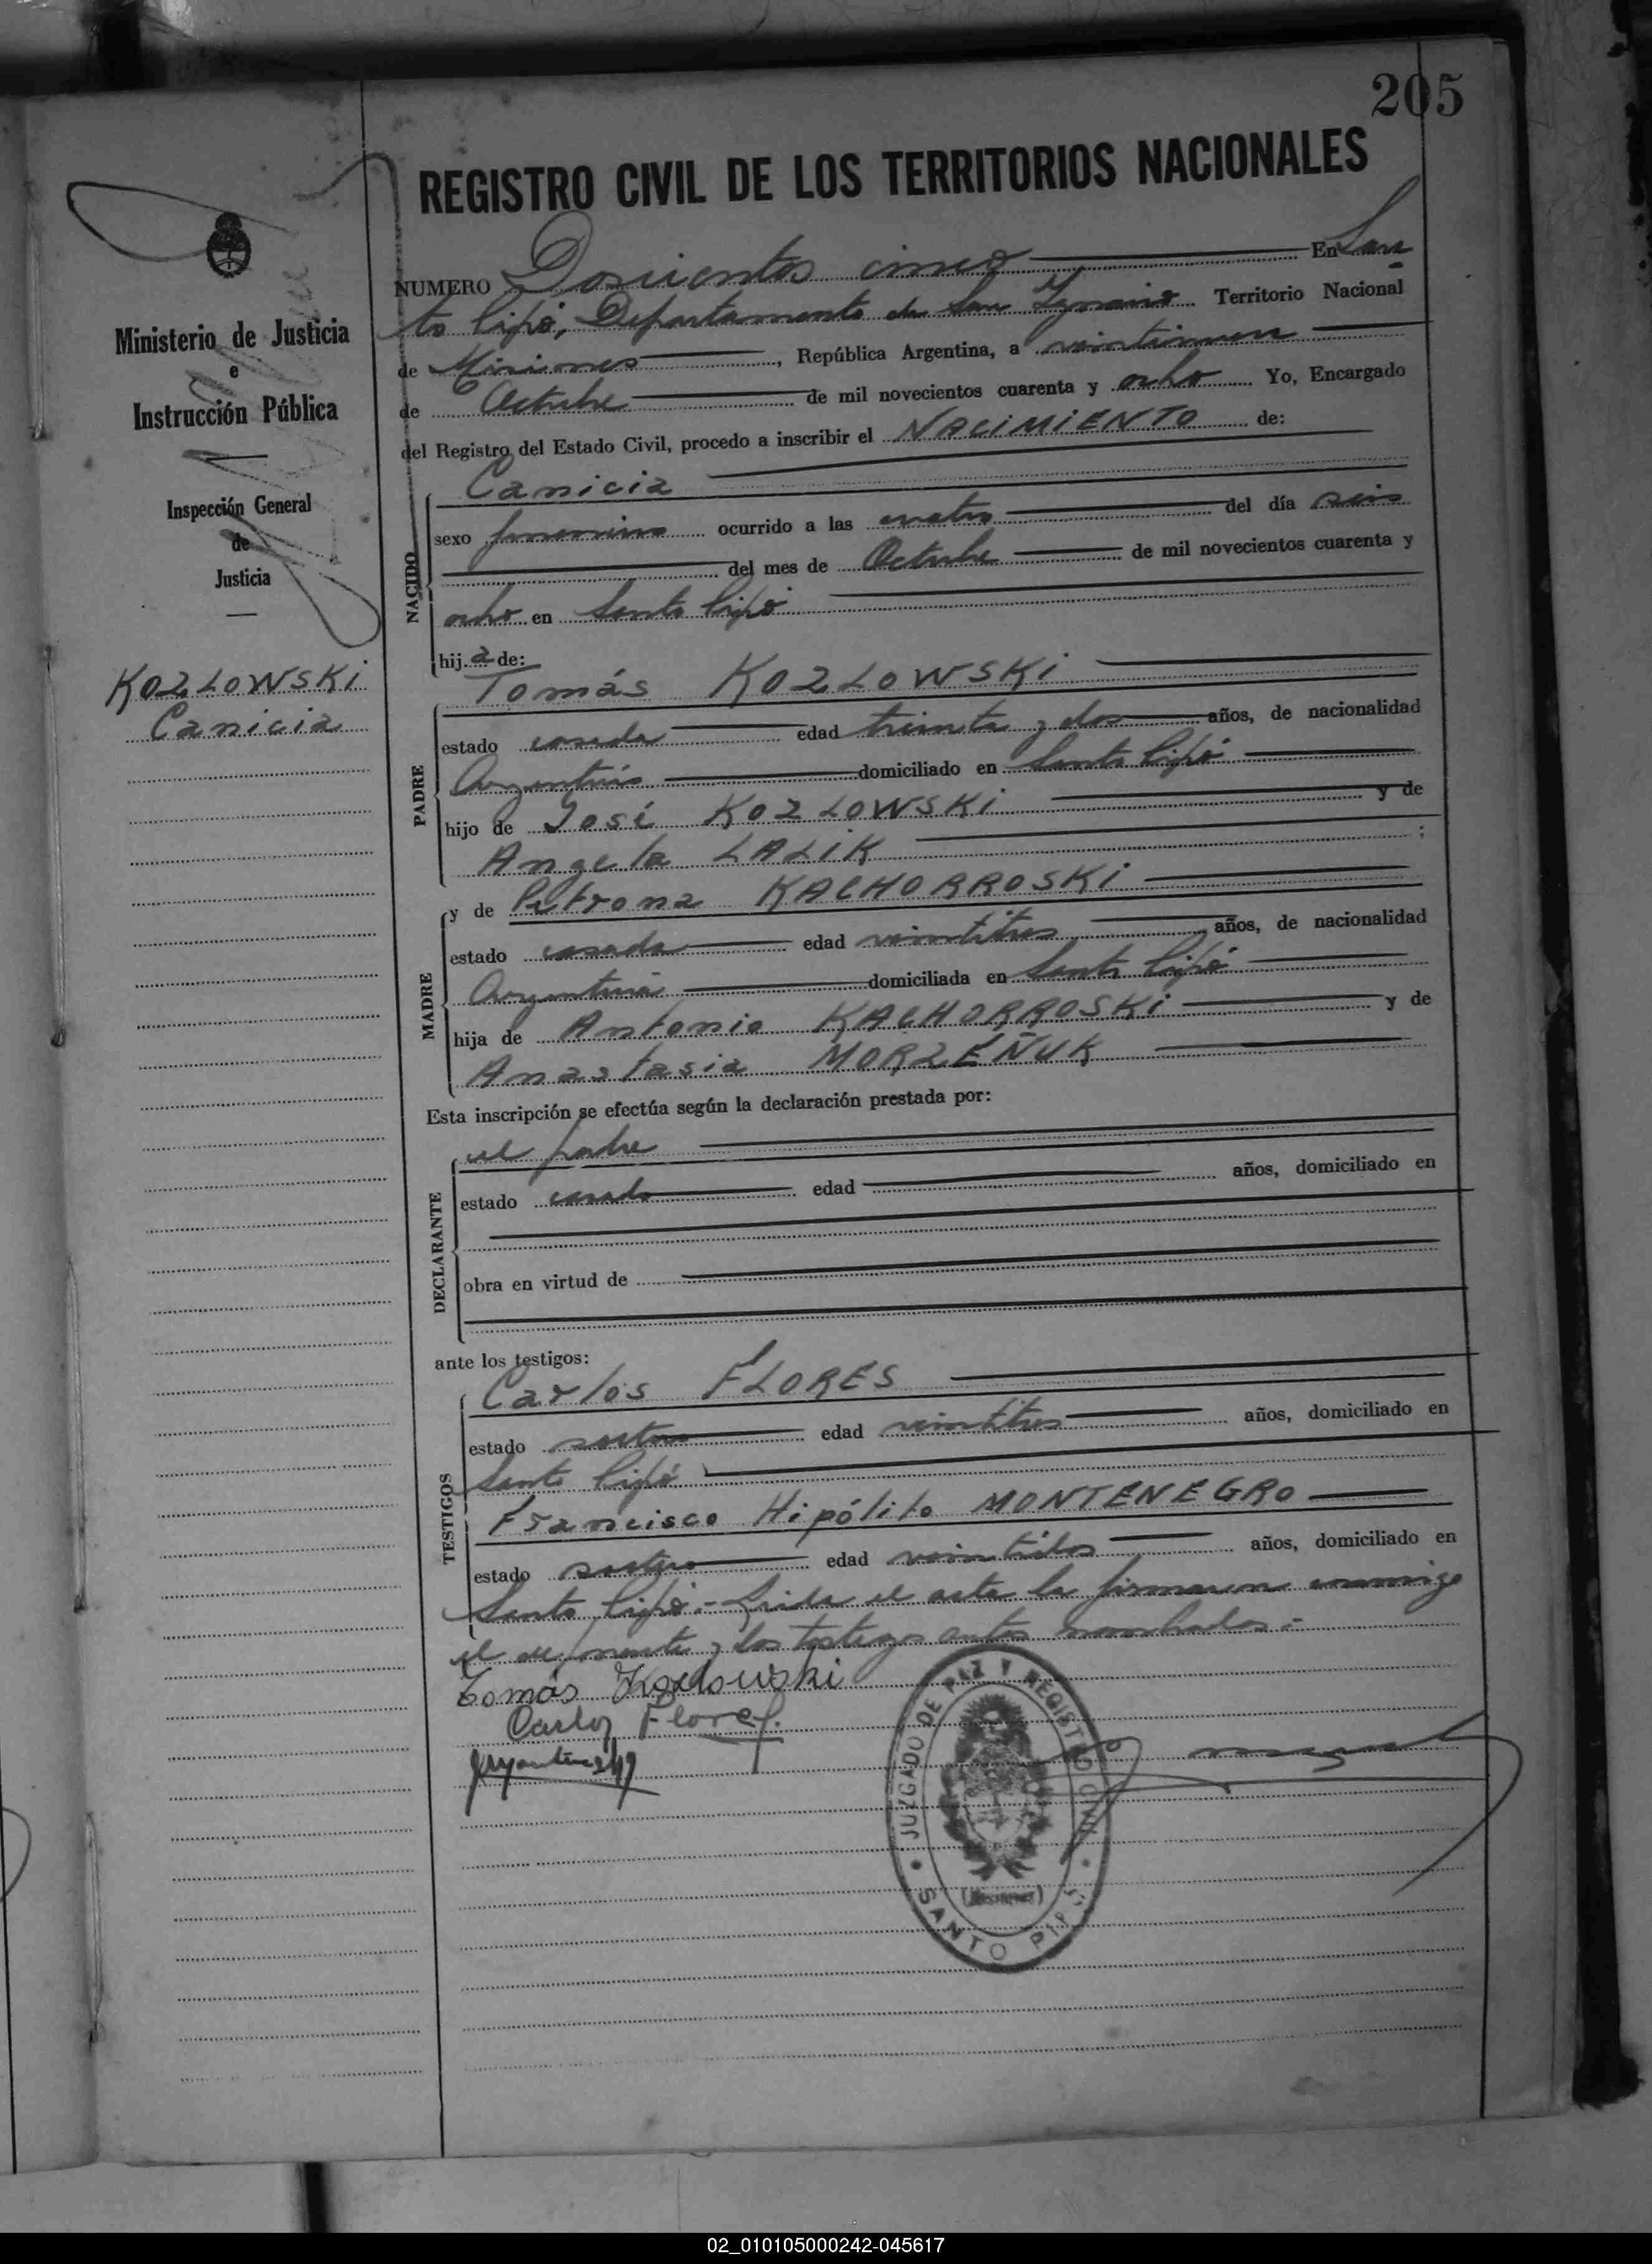 205
REGISTRO CIVIL DE LOS TERRITORIOS NACIONALES
Ministerio de Justicia
e
Instrucción Pública
Inspección General
de
Justicia
KOZLOWSKI
Canicia
NUMERO Doscientos cinco En San
to Pipó, Departamento de San Ignacio Territorio Nacional
de Misiones, República Argentina, a veintinueve
de Octubre de mil novecientos cuarenta y ocho Yo, Encargado
del Registro del Estado Civil, procedo a inscribir el NACIMIENTO de:
NACIDO
Canicia
sexo femenino ocurrido a las cuatro del día seis
del mes de Octubre de mil novecientos cuarenta y
ocho en Santo Pipó
hija de:
PADRE
Tomás KOZLOWSKI
estado casado edad treinta y dos años, de nacionalidad
Argentino domiciliado en Santo Pipó
hijo de José KOZLOWSKI y de
Angela LALIK ;
MADRE
y de Petrona KACHORROSKI
estado casada edad veintitres años, de nacionalidad
Argentina domiciliada en Santo Pipó
hija de Antonio KACHORROSKI y de
Anastasia MORZEÑUK
Esta inscripción se efectúa según la declaración prestada por:
DECLARANTE
el padre
estado casado edad años, domiciliado en
obra en virtud de
ante los testigos:
TESTIGOS
Carlos FLORES
estado soltero edad veintitres años, domiciliado en
Santo Pipó
Francisco Hipólito MONTENEGRO
estado soltero edad veintidos años, domiciliado en
Santo Pipó.- Leída el acta la firmaron conmigo
el exponente y los testigos antes nombrados.-
Tomás Kozlowski
Carlos Flores.
JUZGADO DE PAZ Y REGISTRO CIVIL
SANTO PIPÓ
(Misiones)
02_010105000242-045617